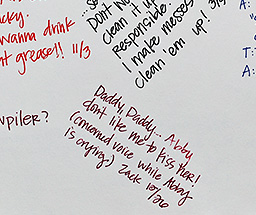 ...se
Don't w
clean it u
responsible
I make messes
Clean 'em up! 3/3
cky.
wanna drink
nt grease!! 11/3
A:
"
a
T:
A
d
wpiler?
Daddy, Daddy... Abby
dont like me to kiss her!
(concerned voice while Abby
is crying) Zack 10/26